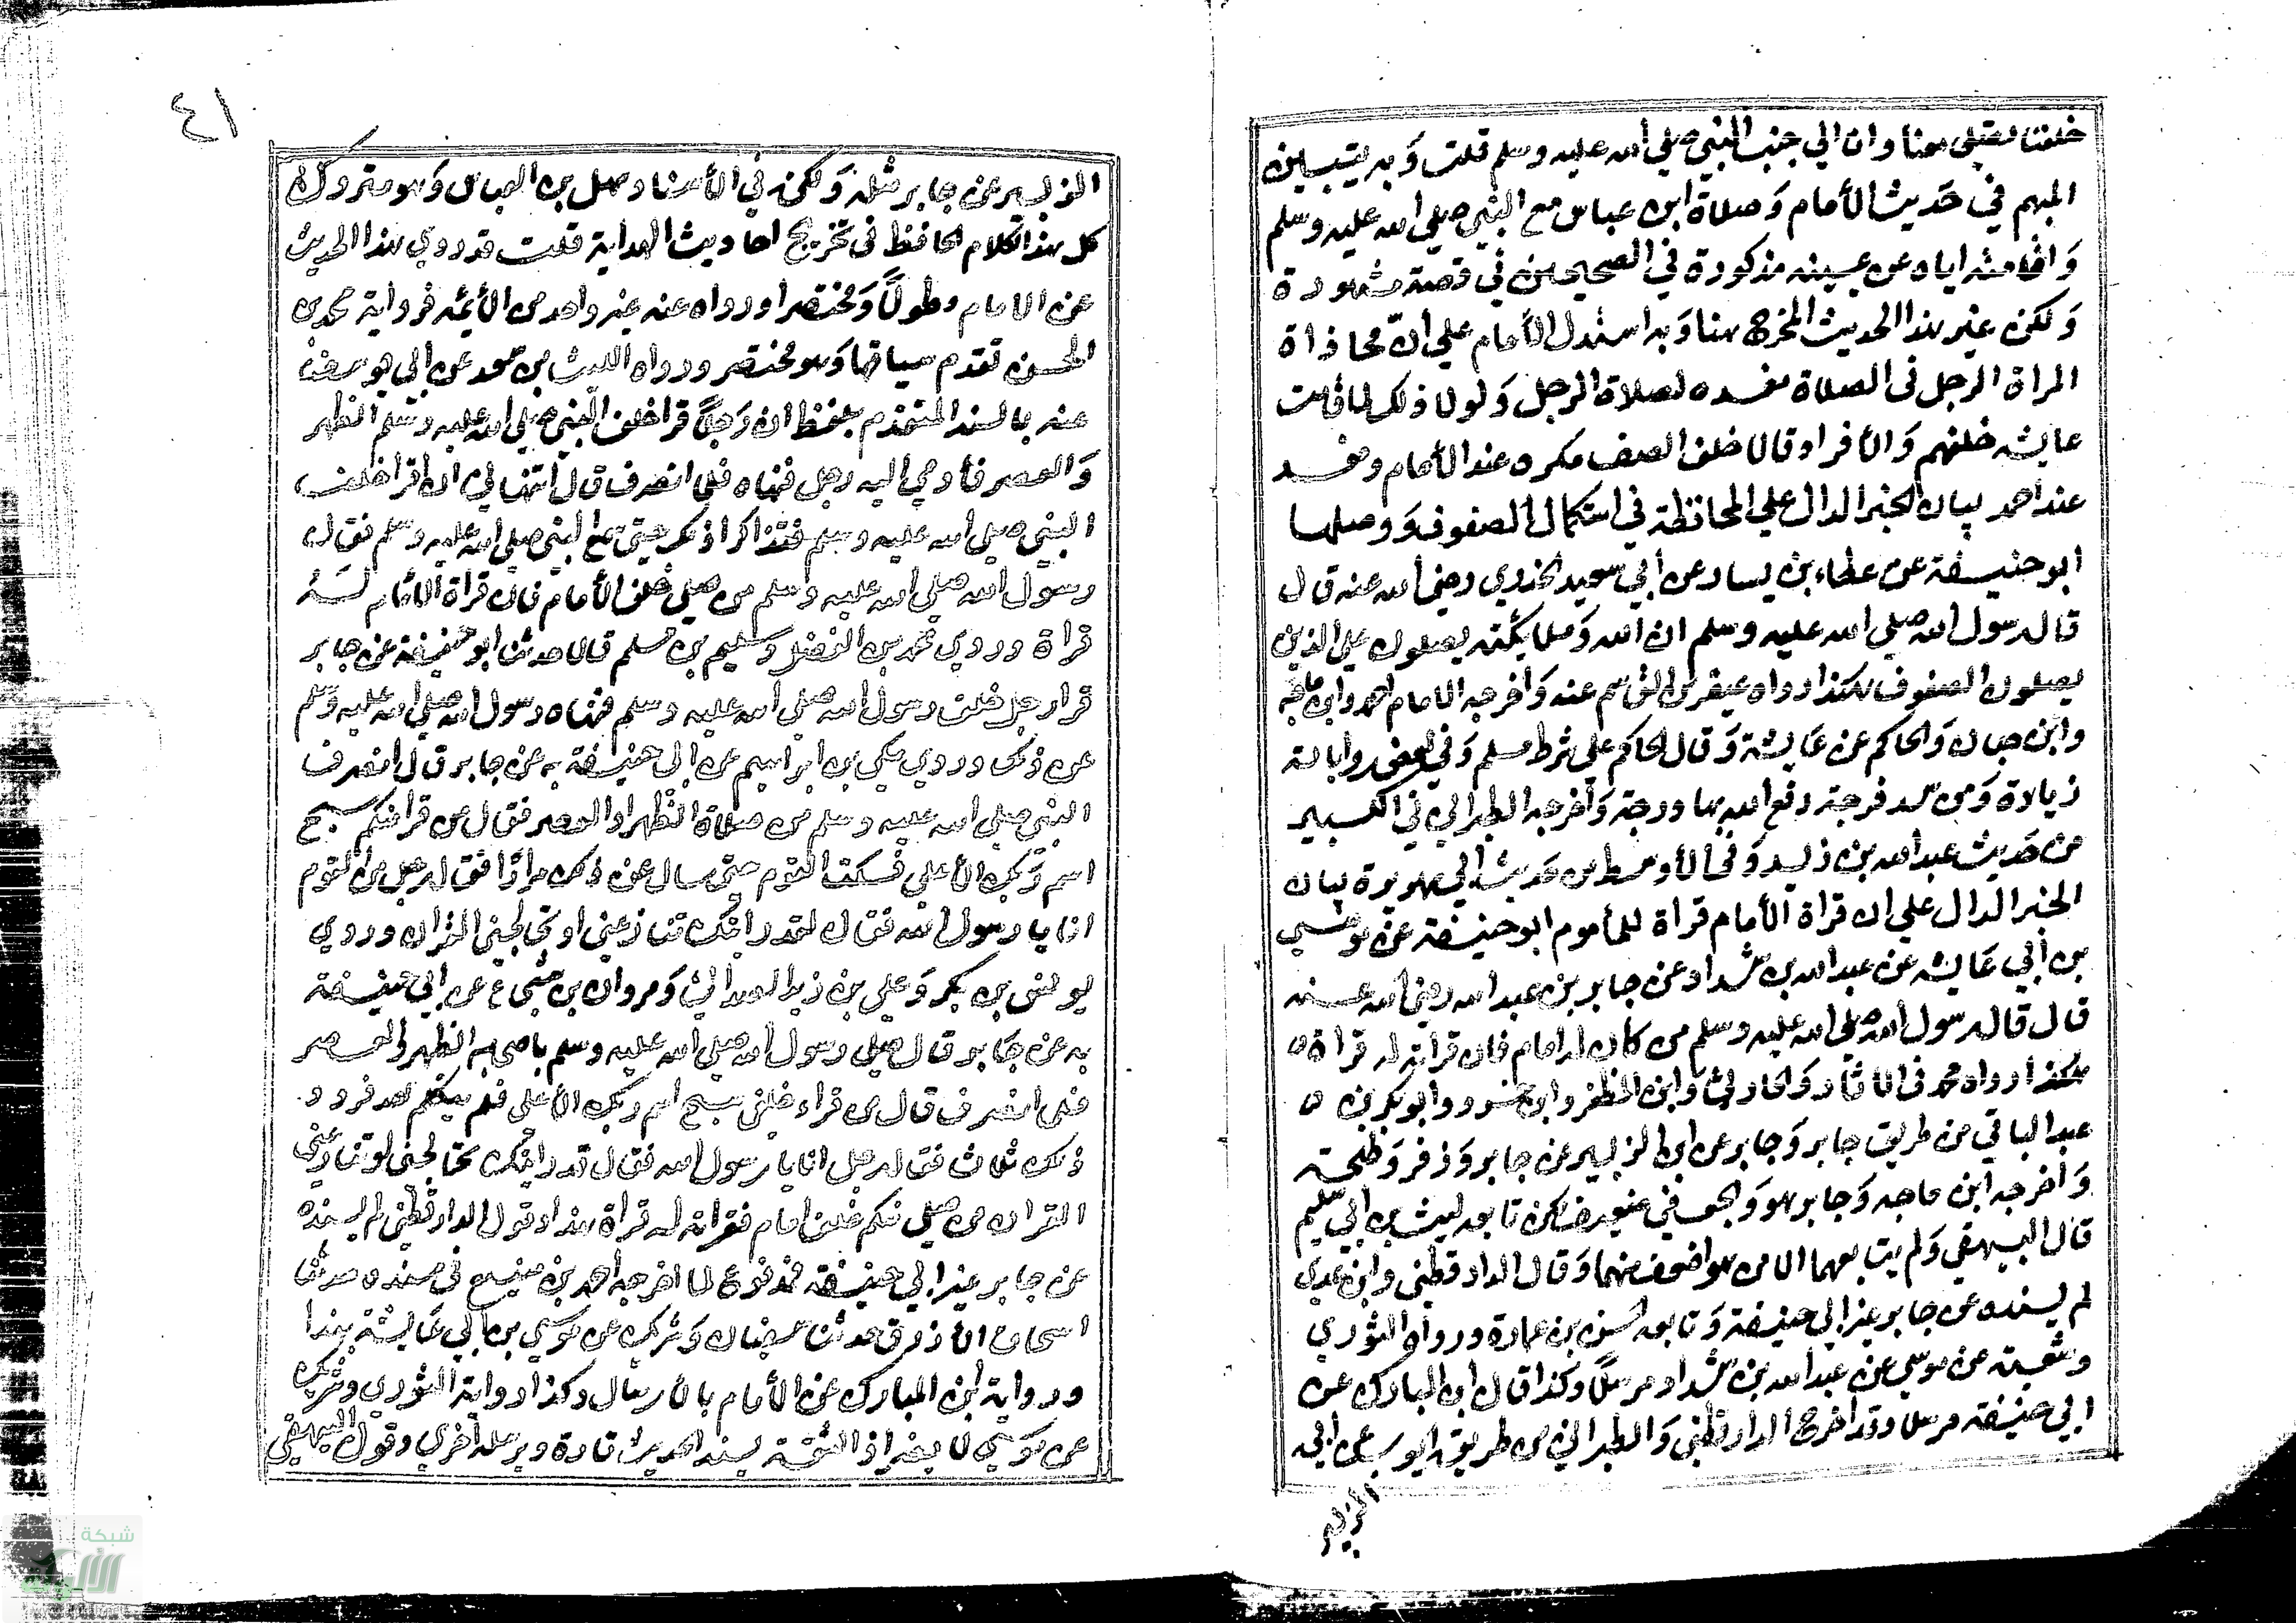 خلفنا تصلي معنا وانا الي جنب النبي صلي الله عليه وسلم قلت وَبه يتبين
المبهم في حَديث الأمام وَصلاة ابن عباس مع النبي صلي الله عليه وسلم
وَاقامته اياه عن يمينه مذكورة في الصحيحين في قصة مشهورة
وَلكن غير هذا الحديث المخرج هنا وَبه استدل الأمام علي أنّ محاذاة
المراة الرجل في الصلاة مفسده لصلاة الرجل وَلولا ذلك لما قامت
عايشه خلفهم وَالأفراد قالا خلف الصف مكره عند الأمام ومفسد
عند أحمد بيان الخبر الدال علي المحافظة في استكمال الصفوف وَوصلها
ابو حنيفة عن عطاء بن يسار عن أبي سعيد الخدري رضي الله عنه قال
قال رسول الله صلي الله عليه وسلم ان الله وَملايكته يصلون علي الذين
يصلون الصفوف هكذا رواه القاسم عنه وَاخرجه الامام احمد وابن ماجه
وابن حبان وَالحاكم عن عَايشة وَقال الحاكم علي شرط مسلم وَفي بعض رواياته
زيادة وَمن سد فرجة رفع الله بها درجة وَاخرجه الطبراني في الكبير
من حَديث عبدالله بن زيد وَفي الأوسط من حَديث أبي هريرة بيان
الخبر الدال علي ان قراة الأمام قراة للمأموم ابو حنيفة عن موسي
بن أبي عَايشه عن عبدالله بن شداد عن جابر بن عبدالله رضي الله عنه
قال قال رسول الله صلي الله عليه وسلم من كان له امام فان قراته له قراة
هكذا رواه محمد في الاثار وَالحارثي وابن المظفر وابن خسرو وابو بكر بن
عبدالباقي من طريق جابر وَجابر عن ابي الزبير عن جابر وَزفر وَطلحة
وَاخرجه ابن ماجه وَجابر هو وَالجعفي ضعيف لكن تابعه ليث بن ابي سليم
قال البيهقي وَلم يتابعهما الا من هو اضعف منهما وَقال الدارقطني وابن عدي
لم يسنده عن جابر غير ابي حنيفة وَتابعه الحسن بن عمارة ورواه الثوري
وشعبة عن موسي عن عبدالله بن شداد مرسلاً وكذا قال ابن المبارك عن
ابي حنيفة مرسلا وقد اخرج الدارقطني وَالطبراني من طريق ايوب عن ابي
الزبير
٤١
الزبير عن جابر مثله وَلكن في الأسناد سهل بن العباس وَهو متروك
كل هذا كلام الحافظ في تخريج احاديث الهداية قلت قد روي هذا الحديث
عن الامام مطولاً وَمختصرا ورواه عنه غير واحد من الأيمه فرواية محمد بن
الحسن تقدم سياقها وَهو مختصر ورواه الليث بن سعد عن ابي يوسف
عنه بالسند المتقدم بلفظ ان رَجلاً قرا خلف النبي صلي الله عليه وسلم الظهر
وَالعصر فأومي اليه رجل فنهاه فلما انصرف قال أتنهاني ان اقرا خلف
النبي صلي الله عليه وسلم فتذاكرا ذلك حتي سمع النبي صلي الله عليه وسلم فقال
رسول الله صلي الله عليه وسلم من صلي خلف الأمام فان قراة الأمام لَهُ
قراة وروي محمد بن الفضل وسليم بن مسلم قالا حدثنا ابو حنيفة عن جابر
قرا رجل خلف رسول الله صلي الله عليه وسلم فنهاه رسول الله صلي الله عليه وَسَلم
عن ذلك وروي مكي بن ابراهيم عن ابي حنيفة به عن جابر قال انصرف
النبي صلي الله عليه وسلم من صلاة الظهر او العصر فقال من قرا منكم سبح
اسم رَبك الأعلي فسكت القوم حتي سال عن ذلك مراراً فقال رجل من القوم
انا يا رسول الله فقال لقد رايتك تنازعني او تخالجني القران وروي
يونس بن بكر وَعلي بن زيد الصدائي وَمروان بن شجاع عن ابي حنيفة
به عن جَابر قال صلي رسول الله صلي الله عليه وسلم باصحابه الظهر والعصر
فلما انصرف قال من قراء خلفي سبح اسم ربك الأعلي فلم يتكلم احد فردد
ذلك ثلاث فقال رجل انا يا رسول الله فقال قد رايتك تخالجني او تنازعني
القران من صلي منكم خلف امام فقراته له قراة هذا وقول الدارقطني لم يسنده
عن جابر غير ابي حنيفة مدفوع لما اخرجه احمد بن منيع في مسنده حدثنا
اسحاق الأزرق حدثنا سفيان وَشريك عن موسي بن ابي عَايشة بهذا
ورواية ابن المبارك عن الأمام بالأرسال وكذا رواية الثوري وشريك
عن موسي لا يضر اذ الثقة يسند الحديث تارة ويرسله اخري وقول البيهقي
شبكة